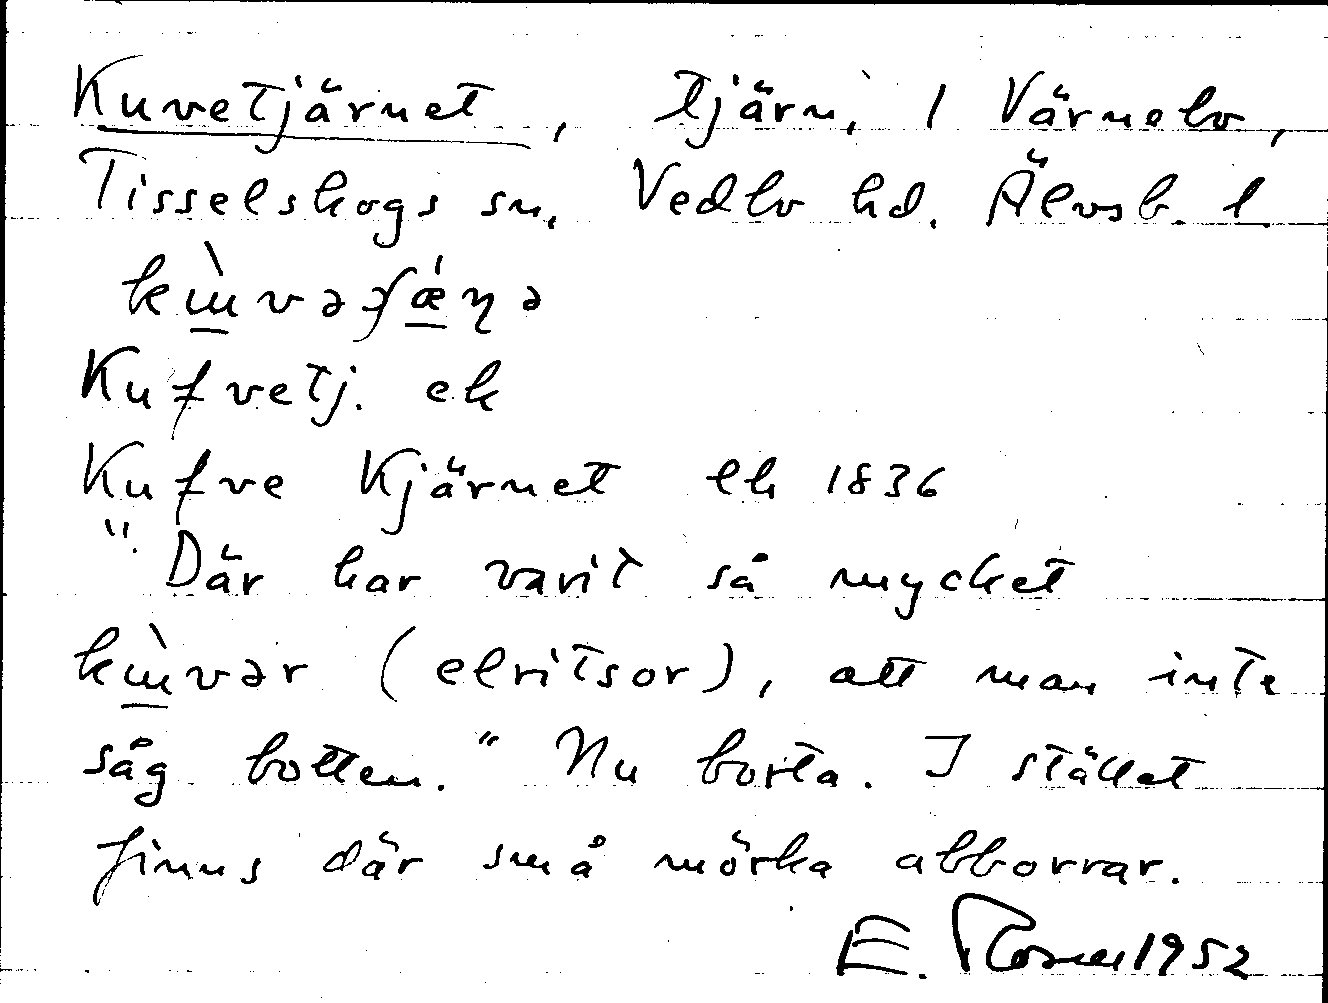 Kuvetjärnet, tjärn, i Värnebo,
Tisselskogs sn, Vedbo hd. Älvsb. l.
Kufvetj. ek
Kufve Kjärnet lk 1836
"Där har varit så mycket
(elritsor), att man inte
såg botten." Nu borta. I stället
finns där små mörka abborrar.
E. 1952